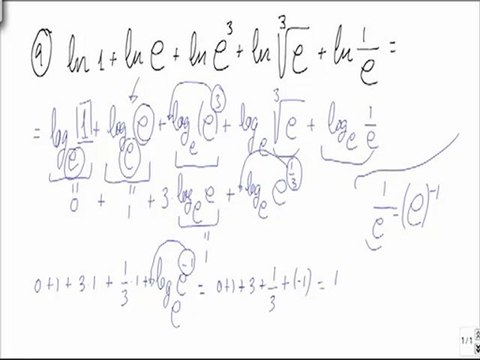 9) ln 1 + ln e + ln e³ + ln ∛e + ln 1/e =
= logₑ 1 + logₑ e + logₑ (e)³ + logₑ ∛e + logₑ 1/e
0 + 1 + 3· logₑ e + logₑ e^(1/3)
1/e = (e)⁻¹
1
0 + 1 + 3·1 + 1/3·1 + logₑ e⁻¹ = 0+1+3+1/3+(-1) = 1
1/1